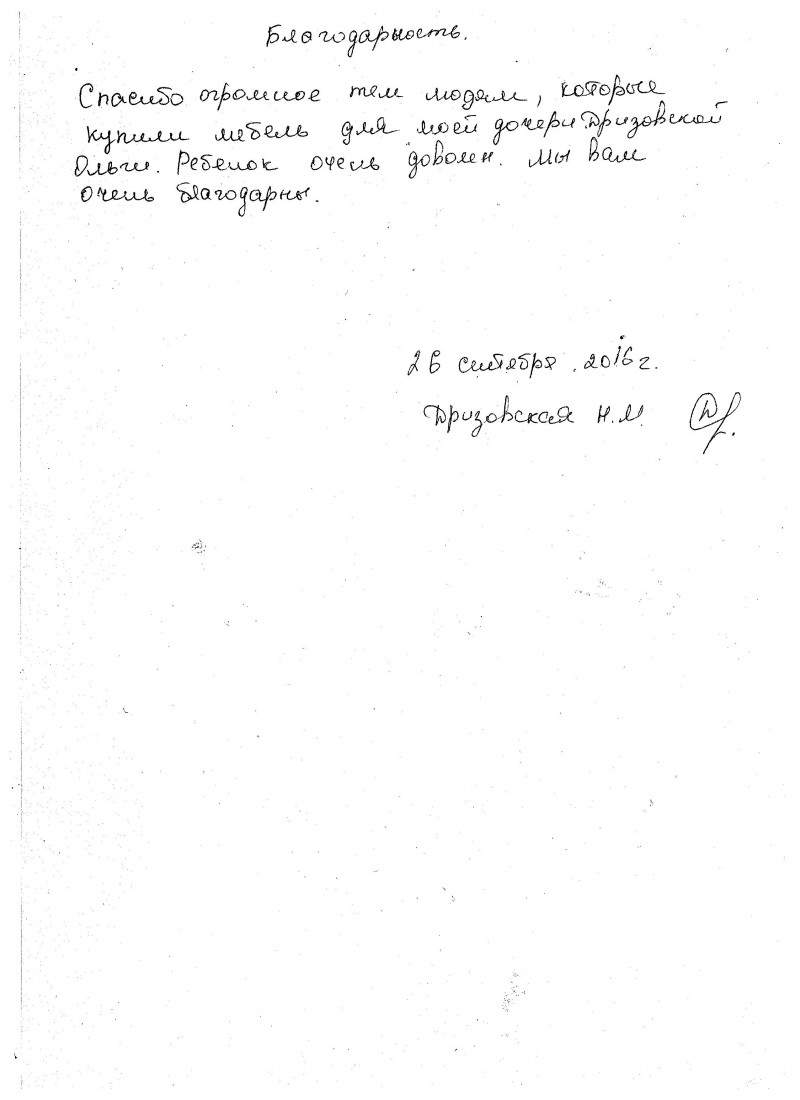 Благодарность.
Спасибо огромное тем людям, которые
купили мебель для моей дочери Дризовской
Ольги. Ребенок очень доволен. Мы вам
очень благодарны.
26 сентября 2016 г.
Дризовская Н.М.